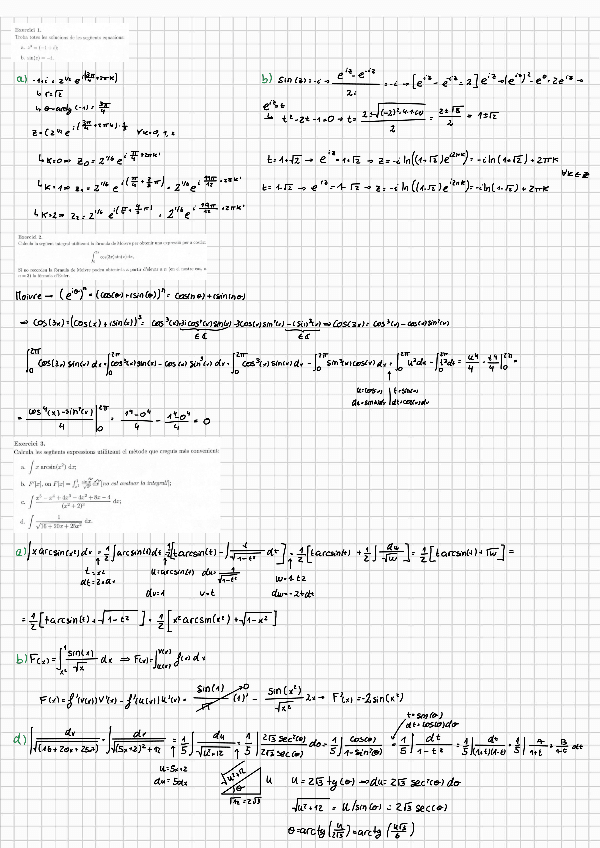 Exercici 1.
Troba totes les solucions de les següents equacions:
a. z³ = (-1 + i);
b. sin(z) = -i.
a) -1+i = z^{1/2} e^{i(3π/4+2πk)}
↳ r=√2
↳ θ=arctg(-1) = 3π/4
Z=(2^{1/2} e^{i(3π/4+2πk)})^{1/3} ∀k=0,1,2
↳ k=0⇒ Z₀ = 2^{1/6} e^{i π/4 +2πk'}
↳ k=1⇒ Z₁ = 2^{1/6} e^{i(π/4+2/3 π)} = 2^{1/6} e^{i 11π/12 +2πk'}
↳ k=2⇒ Z₂ = 2^{1/6} e^{i(π/4+4/3 π)} = 2^{1/6} e^{i 19π/12 +2πk'}
b) sin(z)=-i → (e^{iz}-e^{-iz})/2i = -i → [e^{iz}-e^{-iz}=2] e^{iz} → (e^{iz})²-e⁰=2e^{iz} →
e^{iz}=t
↳ t²-2t-1=0 → t = (2±√((-2)²-4·1·(-1)))/2 = (2±√8)/2 = 1±√2
t=1+√2 → e^{iz}=1+√2 → z=-i ln((1+√2)e^{i2πk})=-i ln(1+√2)+2πk
∀k∈Z
t=1-√2 → e^{iz}=1-√2 → z=-i ln((1-√2)e^{i2πk})=-i ln(1-√2)+2πk
Exercici 2.
Calcula la següent integral utilitzant la fórmula de Moivre per obtenir una expressió per a cos(3x):
∫₀^{2π} cos(3x) sin(x) dx,
Si no recordes la fórmula de Moivre pots obtenir-la a partir d'elevar a n
la fórmula d'Euler.
Moivre → (e^{iθ})ⁿ = (cos(θ)+i sin(θ))ⁿ = cos(nθ)+i sin(nθ)
⇒ cos(3x)=(cos(x)+i sin(x))³ = cos³(x)+3i cos²(x) sin(x)-3cos(x) sin²(x)-i sin³(x) ⇒ cos(3x)= cos³(x)-cos(x) sin²(x)
∈ℂ ∈ℂ
∫₀^{2π} cos(3x) sin(x) dx = ∫₀^{2π} cos³(x) sin(x) - cos(x) sin³(x) dx = ∫₀^{2π} cos³(x) sin(x) dx - ∫₀^{2π} sin³(x) cos(x) dx = ∫₀^{2π} u³du - ∫₀^{2π} t³dt = u⁴/4 - t⁴/4 |₀^{2π} =
u=cos(x) | t=sin(x)
du=sin(x)dx | dt=cos(x)dx
= (cos⁴(x)-sin⁴(x))/4 |₀^{2π} = (1⁴-0⁴)/4 - (1⁴-0⁴)/4 = 0
Exercici 3.
Calcula les següents expressions utilitzant el mètode que creguis més convenient:
a. ∫ x arcsin(x²) dx;
b. F'[x], on F[x] = ∫_{x²}^{1} sin(x)/√x dx [no cal avaluar la integral!];
c. ∫ (x⁵ - x⁴ + 4x³ - 4x² + 8x - 4)/(x² + 2)³ dx;
d. ∫ 1/√(16 + 20x + 25x²) dx.
a) ∫x arcsin(x²) dx = 1/2 ∫arcsin(t) dt = 1/2 [t arcsin(t) - ∫ t/√(1-t²) dt] = 1/2 [t arcsin(t) + 1/2 ∫ dw/√w] = 1/2 [t arcsin(t) + √w] =
t=x² u=arcsin(t) du=1/√(1-t²) w=1-t²
dt=2xdx dv=1 v=t dw=-2tdt
= 1/2 [t arcsin(t) + √(1-t²)] = 1/2 [x² arcsin(x²) + √(1-x⁴)]
b) F(x)=∫_{x²}^{1} sin(x)/√x dx ⇒ F(x)=∫_{u(x)}^{v(x)} f(x) dx
F(x)=f'(v(x))V'(x) - f'(u(x))u'(x) = sin(1)/√1 (1)' - sin(x²)/√x² 2x → F'(x)=-2 sin(x²)
d) ∫ dx/√(16+20x+25x²) = ∫ dx/√((5x+2)²+12) = 1/5 ∫ du/√(u²+12) = 1/5 ∫ 2√3 sec²(θ)/2√3 sec(θ) dθ = 1/5 ∫ cos(θ)/(1-sin²θ) = 1/5 ∫ dt/(1-t²) = 1/5 ∫ dt/(1+t)(1-t) = 1/5 ∫ A/(1+t) + B/(1-t) dt
t=sin(θ)
dt=cos(θ)dθ
u=5x+2
du=5dx
√(u²+12) u
θ
√12=2√3
u=2√3 tg(θ) ⇒ du=2√3 sec²(θ) dθ
√(u²+12) = u/sin(θ) = 2√3 sec(θ)
θ=arctg(u/2√3)=arctg(u√3/6)